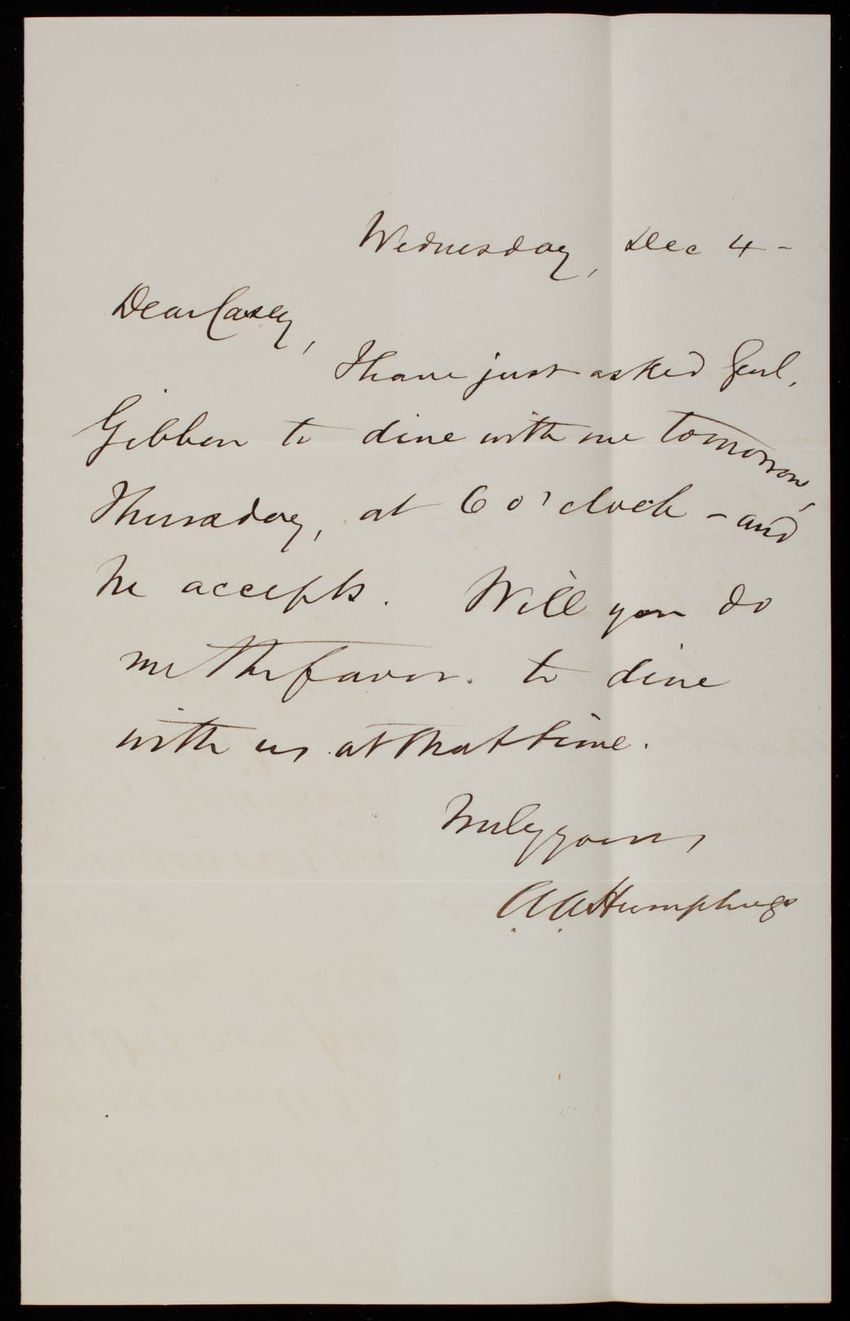 Wednesday, Dec 4 -
Dear Casey,
I have just asked Genl,
Gibbon to dine with me tomorrow,
Thursday, at 6 o'clock - and
he accepts. Will you do
me the favor. to dine
with us at that time.
Truly yours,
A A Humphreys